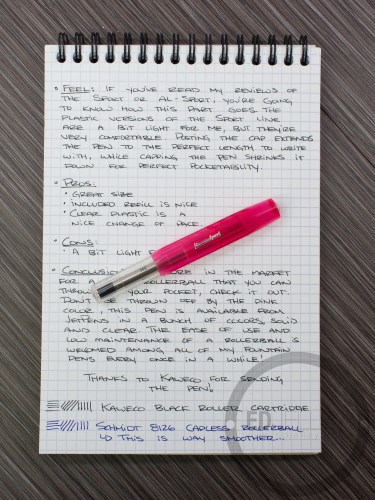 • Feel: If you've read my reviews of
the Sport or AL-Sport, you're going
to know how this part goes. The
plastic versions of the Sport line
are a bit light for me, but they're
very comfortable. Posting the cap extends
the pen to the perfect length to write
with, while capping the pen shrinks it
down for perfect pocketability.
• Pros:
• Great size
• Included refill is nice
• Clear plastic is a
nice change of pace
• Cons:
• A bit light
• Conclusion: in the market
for a rollerball that you can
throw your pocket, check it out.
Don't be thrown off by the pink
color, this pen is available from
JetPens in a bunch of colors, solid
and clear. The ease of use and
low maintenance of a rollerball is
welcomed among all of my fountain
pens every once in a while!
Thanks to Kaweco for sending
the pen!
Kaweco Black Roller Cartridge
Schmidt 8126 Capless Rollerball
↳ This is way smoother...
ED